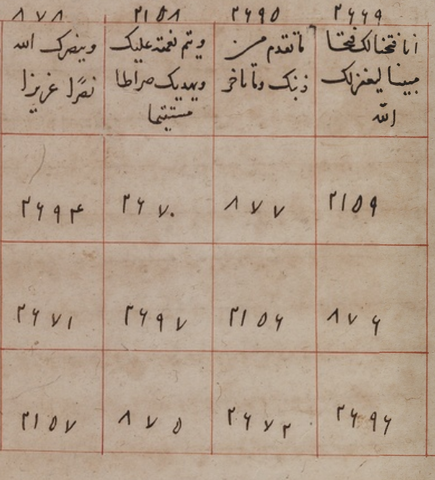 ٢٦٦٩ ٢٦٩٥ ٢١٥٨ ٨٧٨
انا فتحنا لك فتحا
مبينا ليغفر لك
الله
ما تقدم من
ذنبك وما تاخر
ويتم نعمته عليك
ويهديك صراطا
مستقيما
وينصرك الله
نصرًا عزيزا
٢١٥٩ ٨٧٧ ٢٦٧٠ ٢٦٩٤
٨٧٦ ٢١٥٦ ٢٦٩٧ ٢٦٧١
٢٦٩٦ ٢٦٧٢ ٨٧٥ ٢١٥٧